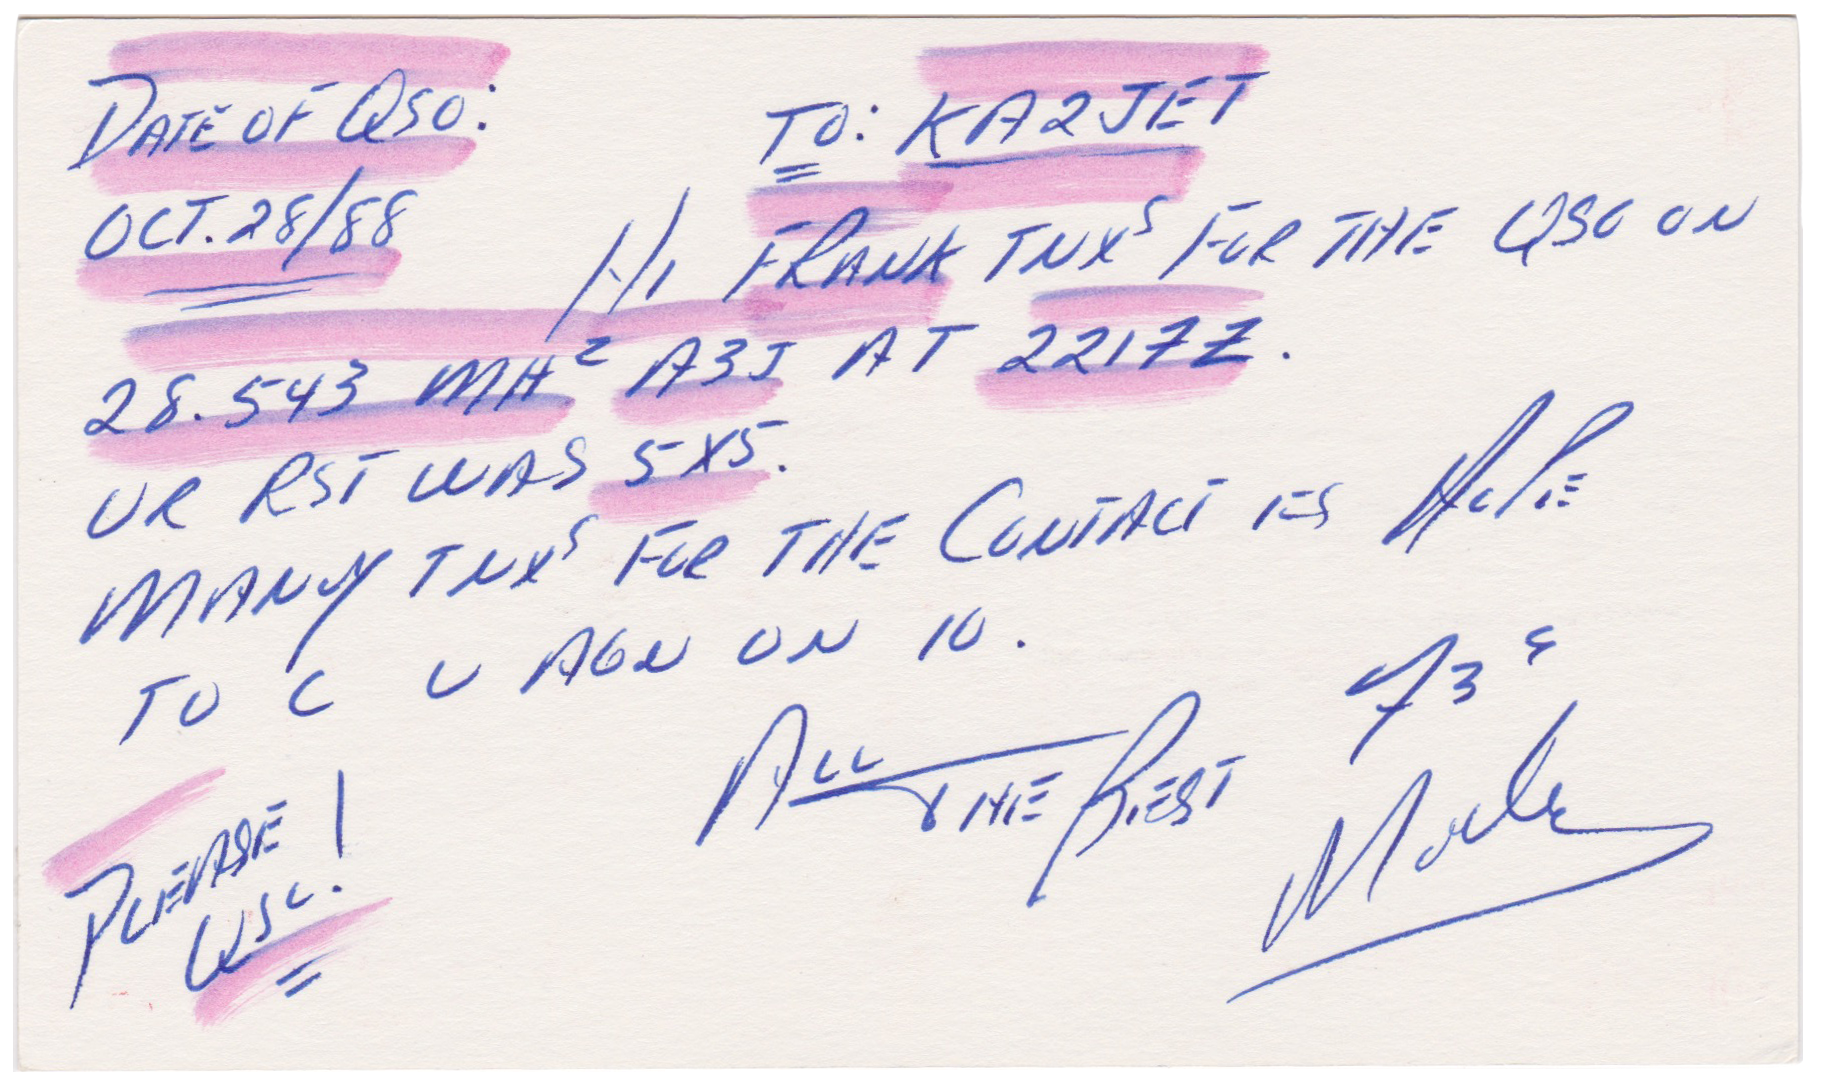 DATE OF QSO:
TO: KA2JET
OCT. 28/88
HI FRANK TNXS FOR THE QSO ON
28.543 MHZ A3J AT 2217Z.
UR RST WAS 5X5.
MANY TNXS FOR THE CONTACT ES HOPE
TO C U AGN ON 10.
73S
ALL THE BEST
PLEASE QSL!